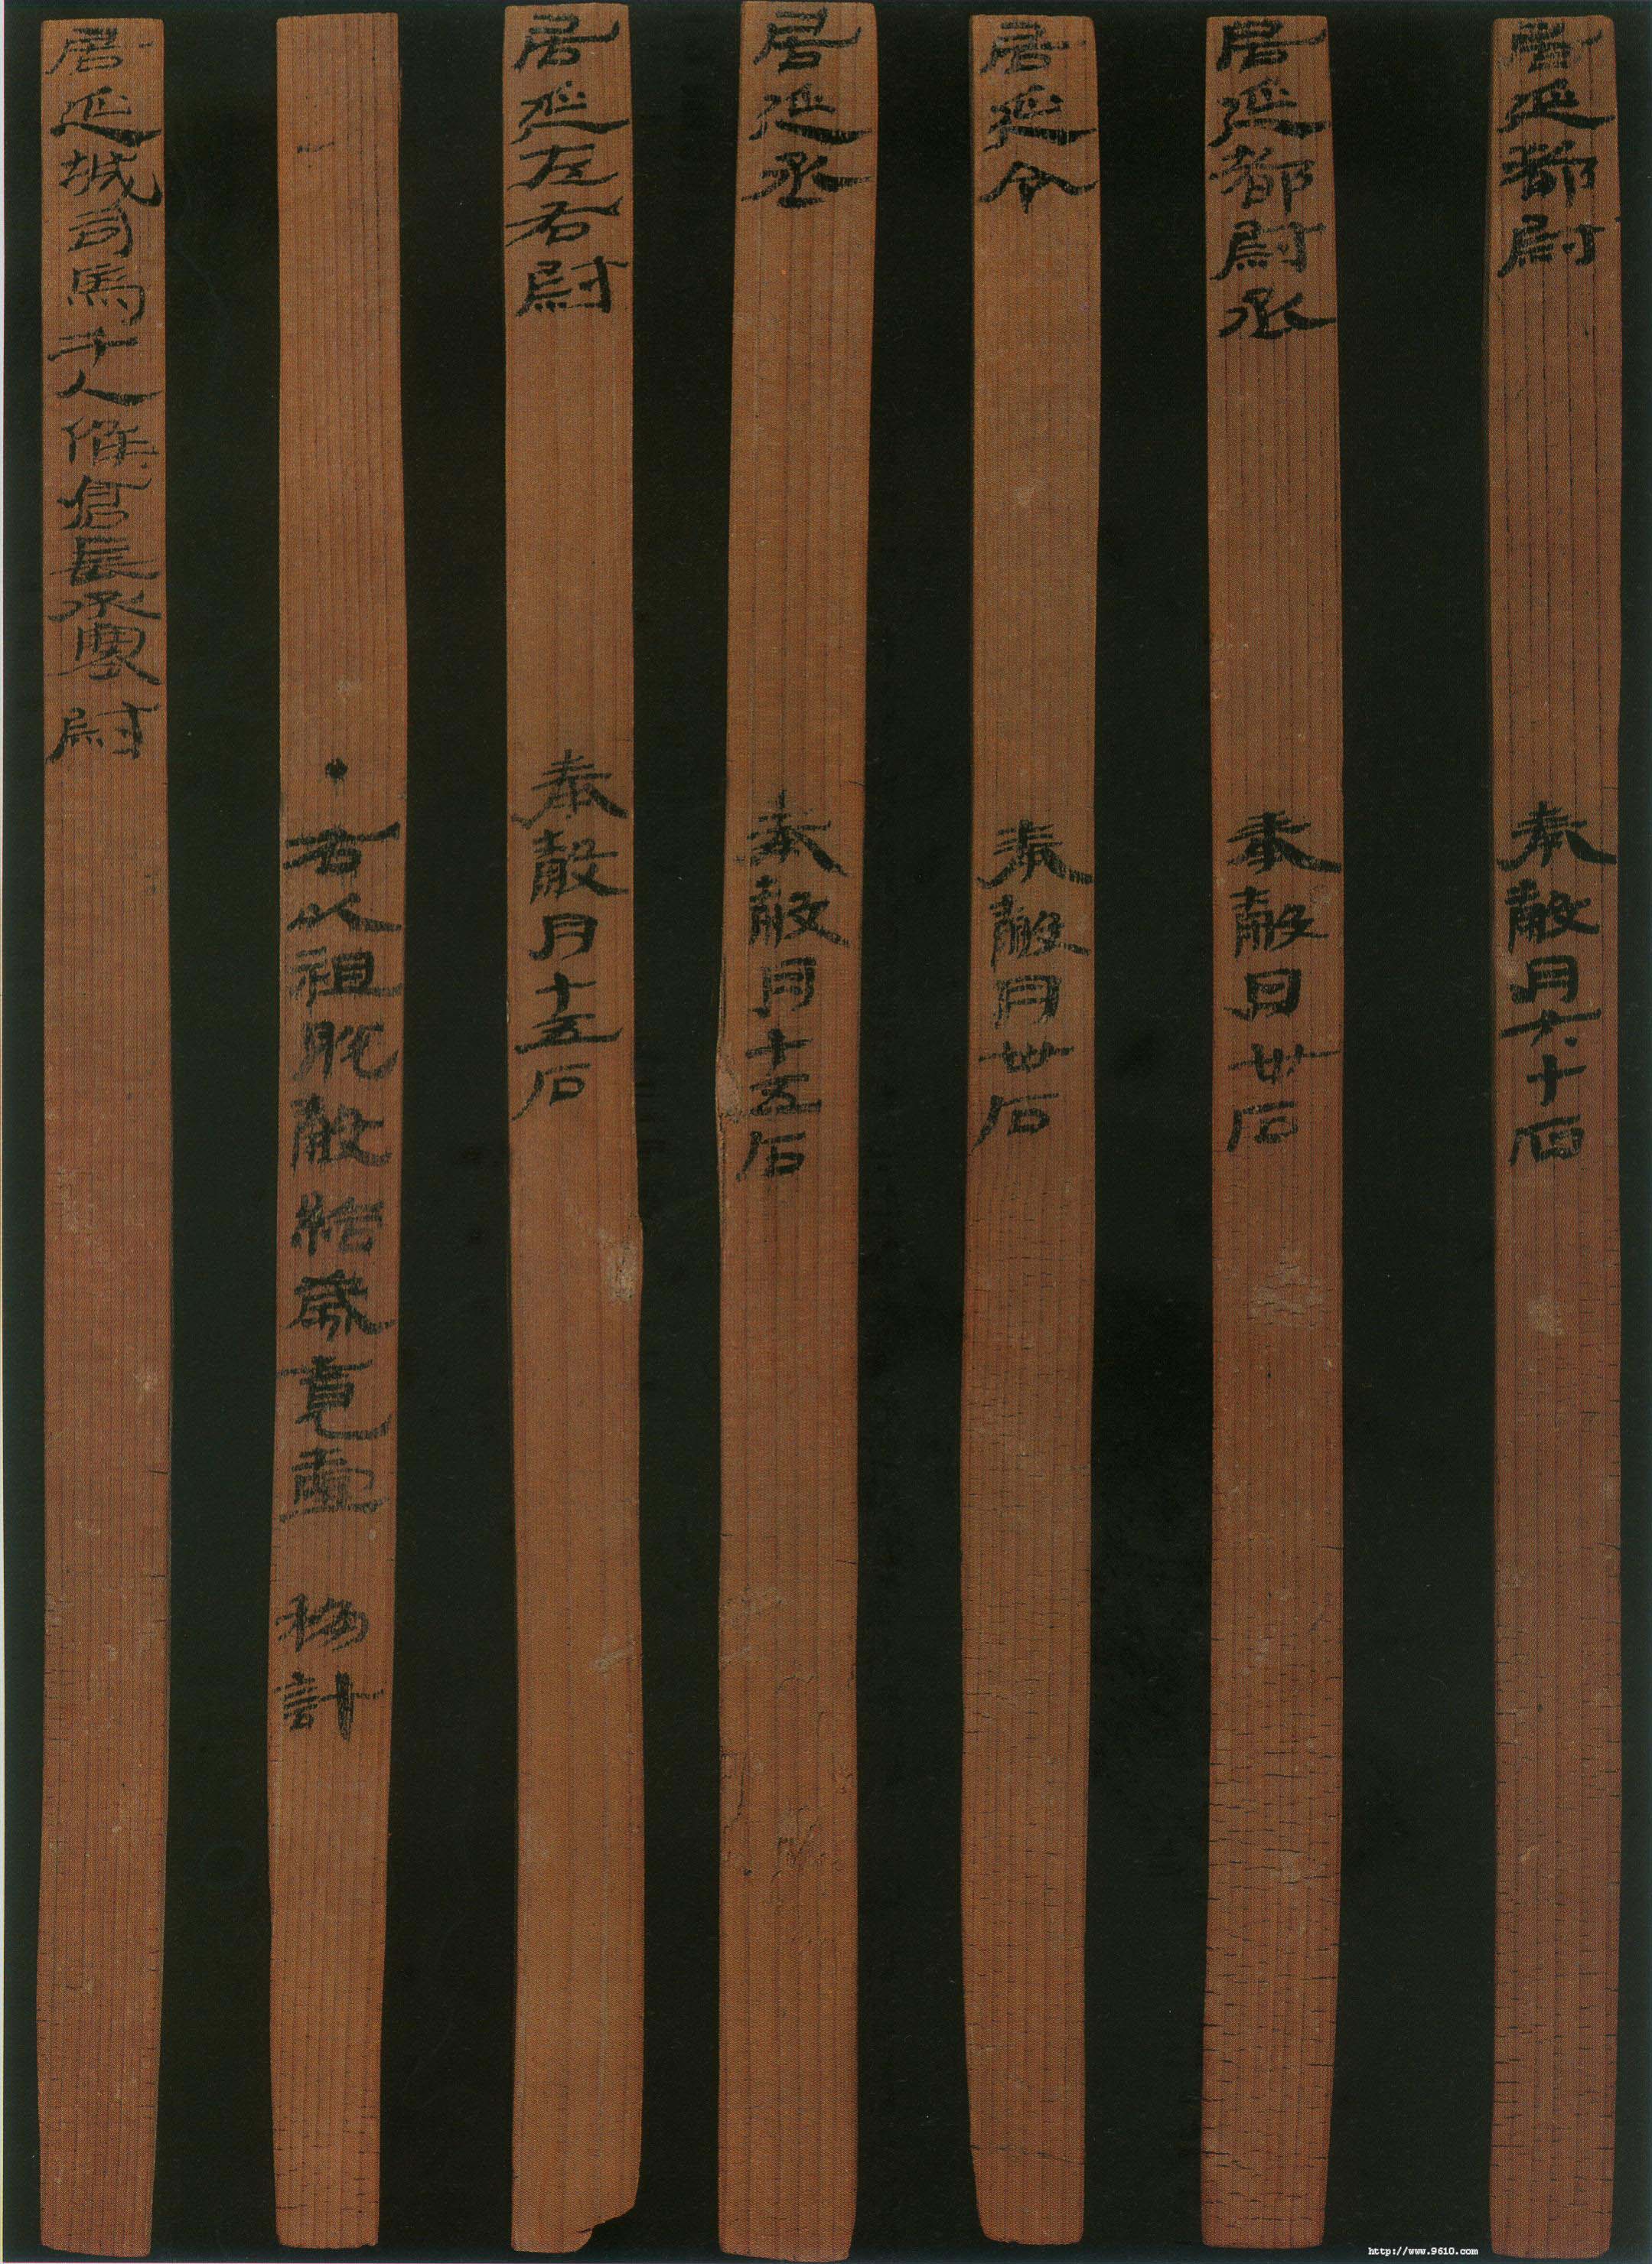 居延都尉 奉穀月六十石
居延都尉丞 奉穀月卅石
居延令 奉穀月卅石
居延丞 奉穀月十五石
居延左右尉 奉穀月十五石
·右以祖脫穀給歲竟壹 移計
居延城司馬千人候倉長丞塞尉
http://www.9610.com